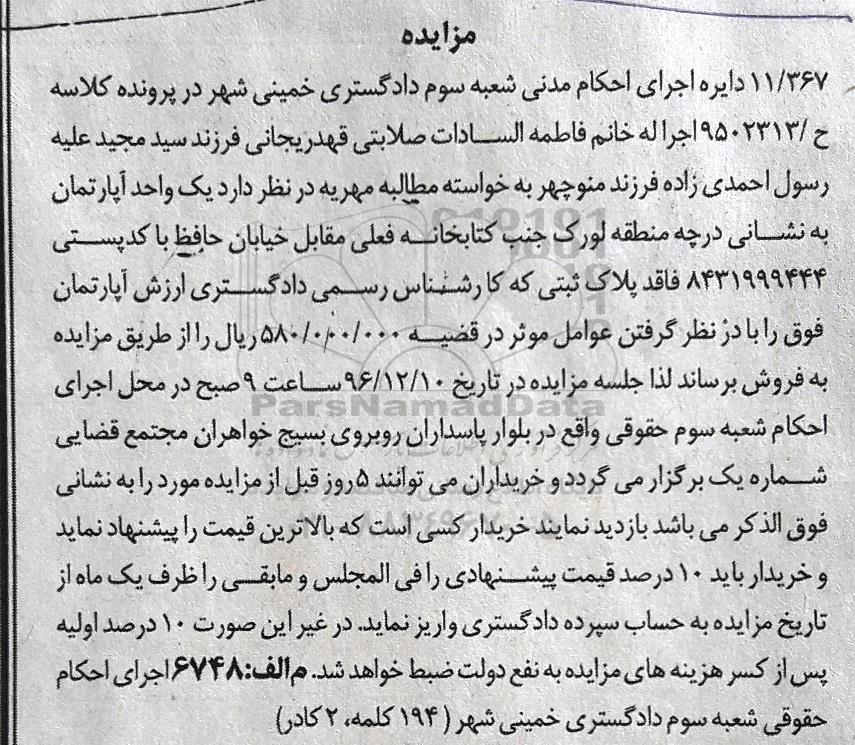 مزایده
۱۱/۳۶۷ دایره اجرای احکام مدنی شعبه سوم دادگستری خمینی شهر در پرونده کلاسه
ح /۹۵۰۲۳۱۳ اجرا له خانم فاطمه السادات صلابتی قهدریجانی فرزند سید مجید علیه
رسول احمدی زاده فرزند منوچهر به خواسته مطالبه مهریه در نظر دارد یک واحد آپارتمان
به نشانی درچه منطقه لورک جنب کتابخانه فعلی مقابل خیابان حافظ با کدپستی
۸۴۳۱۹۹۹۴۴۴ فاقد پلاک ثبتی که کارشناس رسمی دادگستری ارزش آپارتمان
فوق را با در نظر گرفتن عوامل موثر در قضیه ۵۸۰/۰۰۰/۰۰۰ ریال را از طریق مزایده
به فروش برساند لذا جلسه مزایده در تاریخ ۹۶/۱۲/۱۰ ساعت ۹ صبح در محل اجرای
احکام شعبه سوم حقوقی واقع در بلوار پاسداران روبروی بسیج خواهران مجتمع قضایی
شماره یک برگزار می گردد و خریداران می توانند ۵ روز قبل از مزایده مورد را به نشانی
فوق الذکر می باشد بازدید نمایند خریدار کسی است که بالاترین قیمت را پیشنهاد نماید
و خریدار باید ۱۰ درصد قیمت پیشنهادی را فی المجلس و مابقی را ظرف یک ماه از
تاریخ مزایده به حساب سپرده دادگستری واریز نماید. در غیر این صورت ۱۰ درصد اولیه
پس از کسر هزینه های مزایده به نفع دولت ضبط خواهد شد. م الف: ۶۷۴۸ اجرای احکام
حقوقی شعبه سوم دادگستری خمینی شهر (۱۹۴ کلمه، ۲ کادر)
ParsNamadData